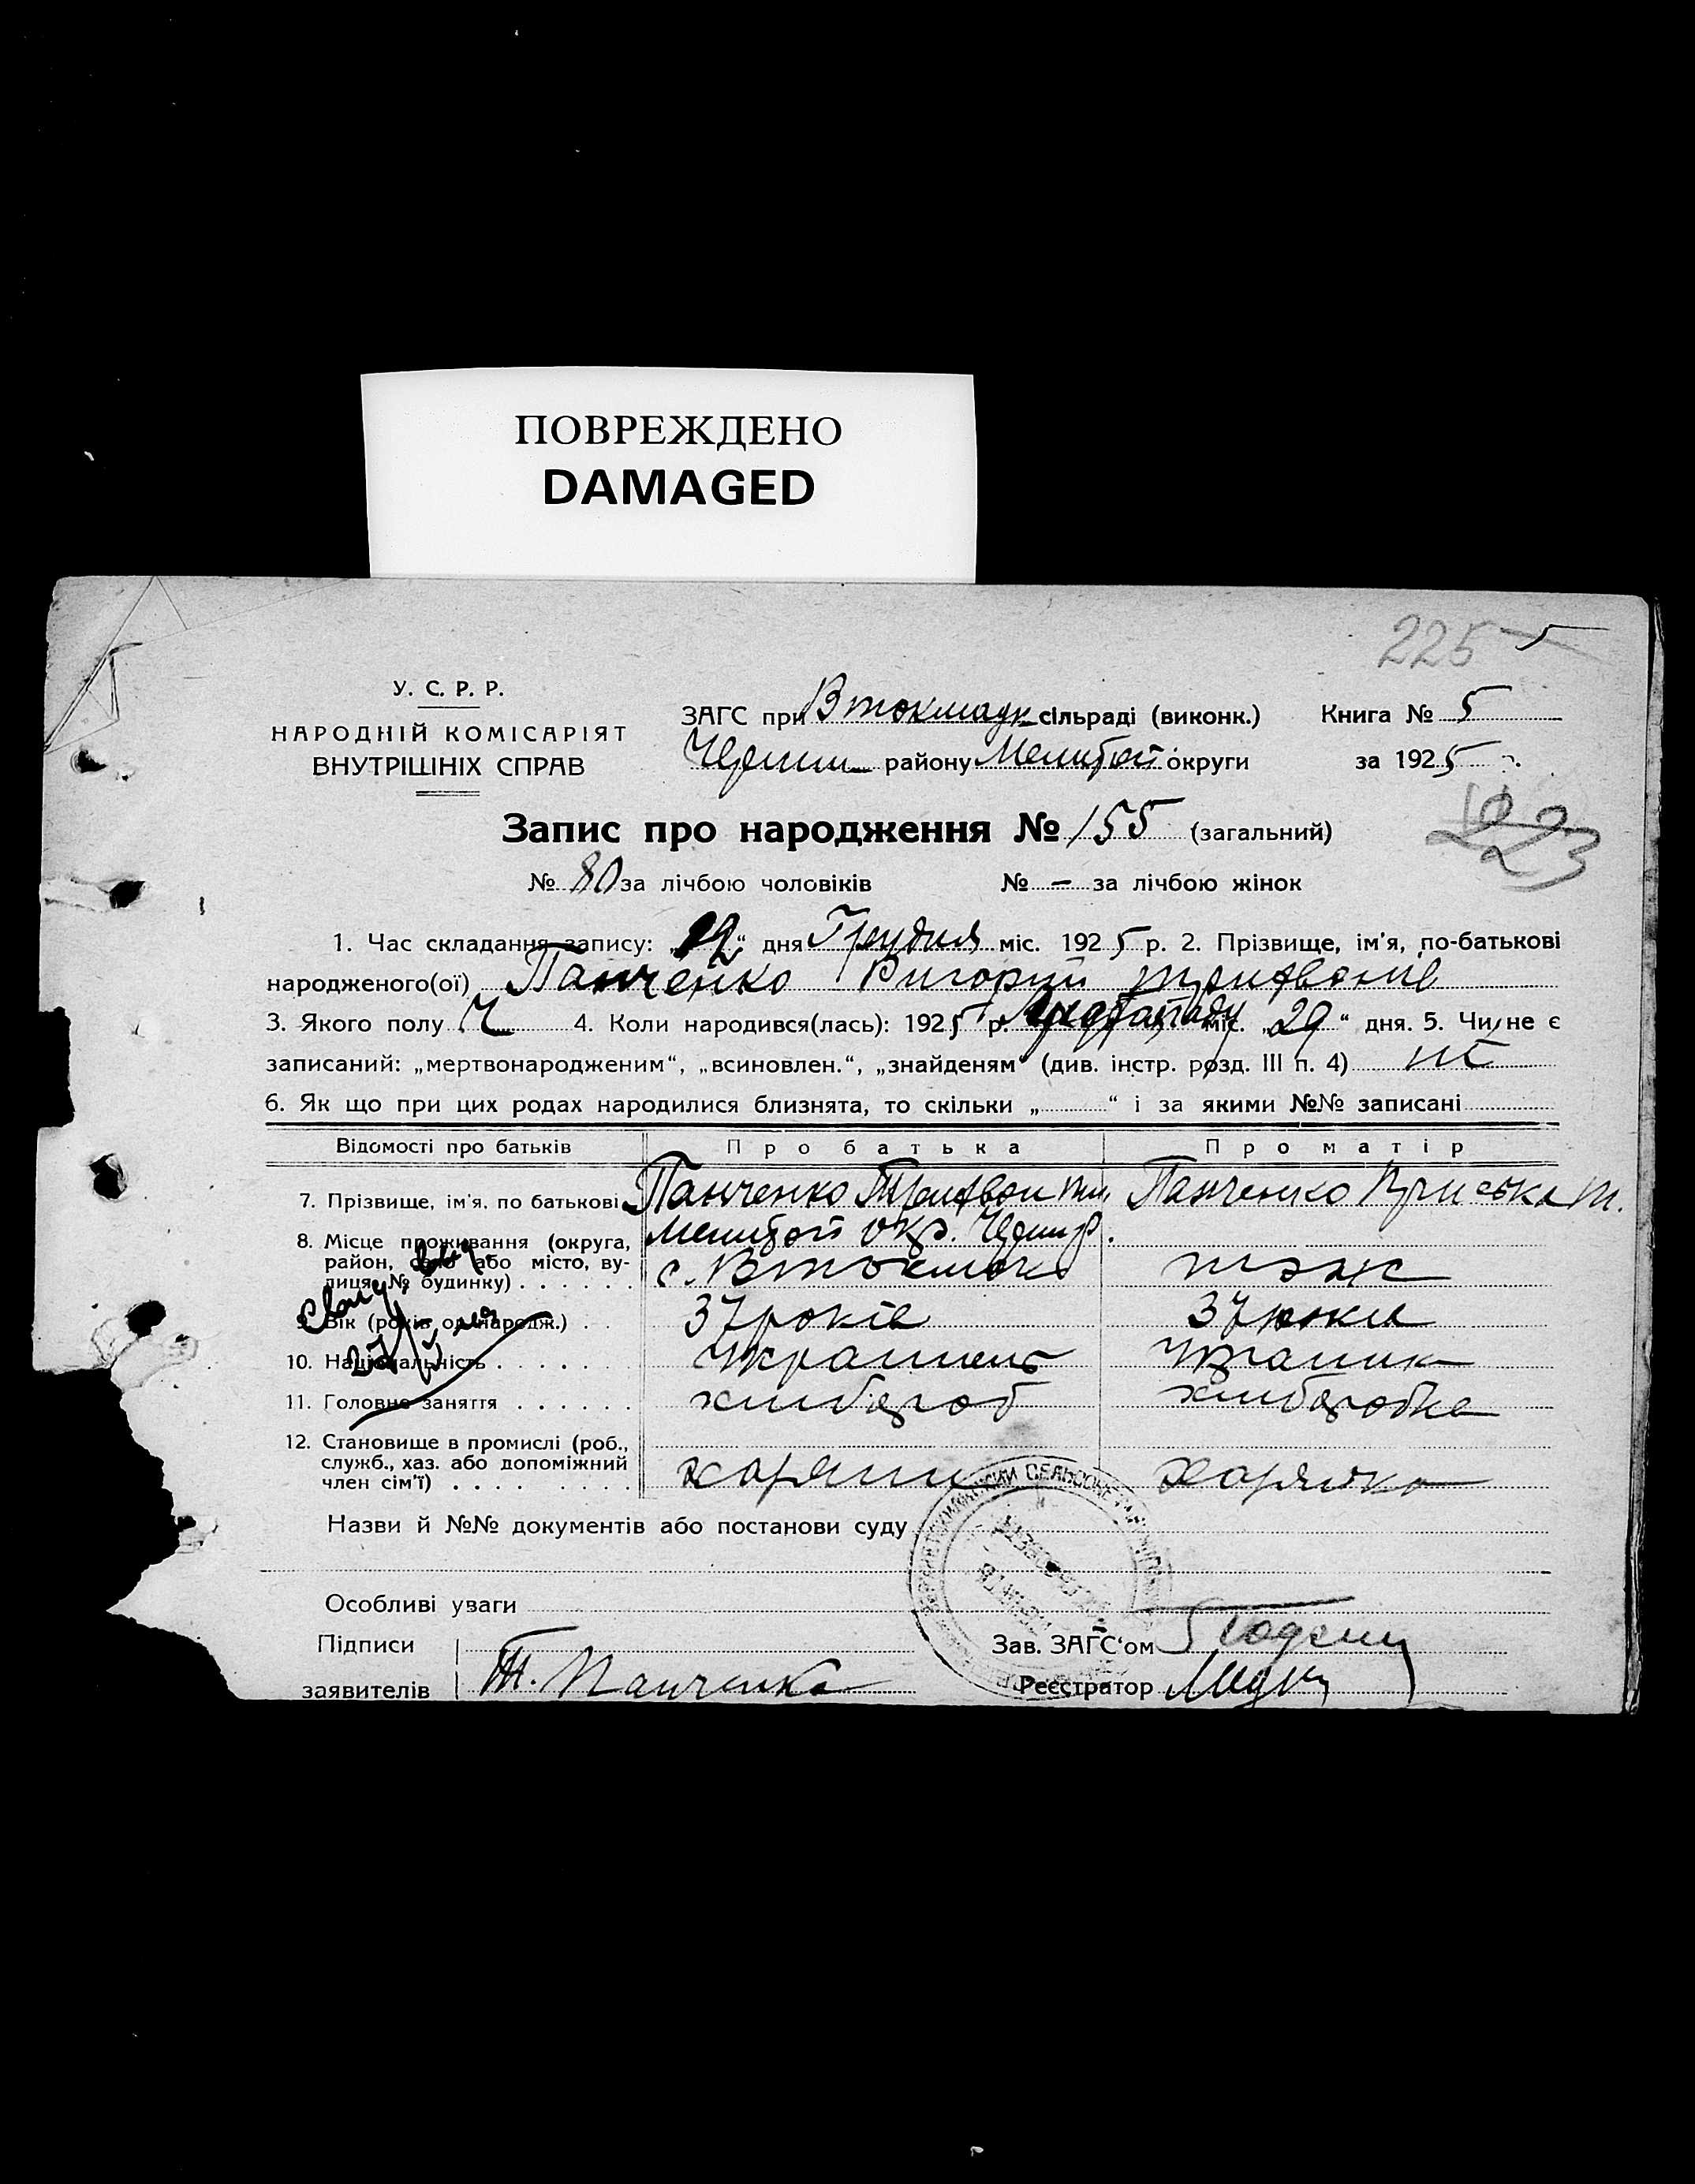 ПОВРЕЖДЕНО
DAMAGED
225 5
У. С. Р. Р.
НАРОДНІЙ КОМІСАРІЯТ
ВНУТРІШНІХ СПРАВ
ЗАГС при Втокмацк сільраді (виконк.) Книга № 5
району Мелитой округи за 1925 р.
Запис про народження № 155 (загальний)
223
№ 80 за лічбою чоловіків № — за лічбою жінок
1. Час складання запису: „12“ дня Грудня міс. 1925 р. 2. Прізвище, ім'я, по-батькові
народженого(ої) Панченко Григорий Трифонів
3. Якого полу Ч 4. Коли народився(лась): 1925 р. Листопаду міс. „29“ дня. 5. Чи не є
записаний: „мертвонародженим“, „всиновлен.“, „знайденям“ (див. інстр. розд. III п. 4) ні
6. Як що при цих родах народилися близнята, то скільки „ “ і за якими №№ записані
Відомості про батьків Про батька Про матір
7. Прізвище, ім'я, по батькові Панченко Трифон Панченко Пріська Т.
8. Місце проживання (округа, Мелитой окр.
район, село або місто, ву- с. Втокмак тэж
лиця, № будинку)
9. Вік (років од народж.) 37 років 37 роки
10. Національність Украинець Украинк
11. Головне заняття хлибороб хлиборобка
12. Становище в промислі (роб.,
служб., хаз. або допоміжний хозяин хозяйка
член сім'ї)
Назви й №№ документів або постанови суду
Особливі уваги
Підписи Зав. ЗАГС'ом
заявителів Т. Панченко Реєстратор